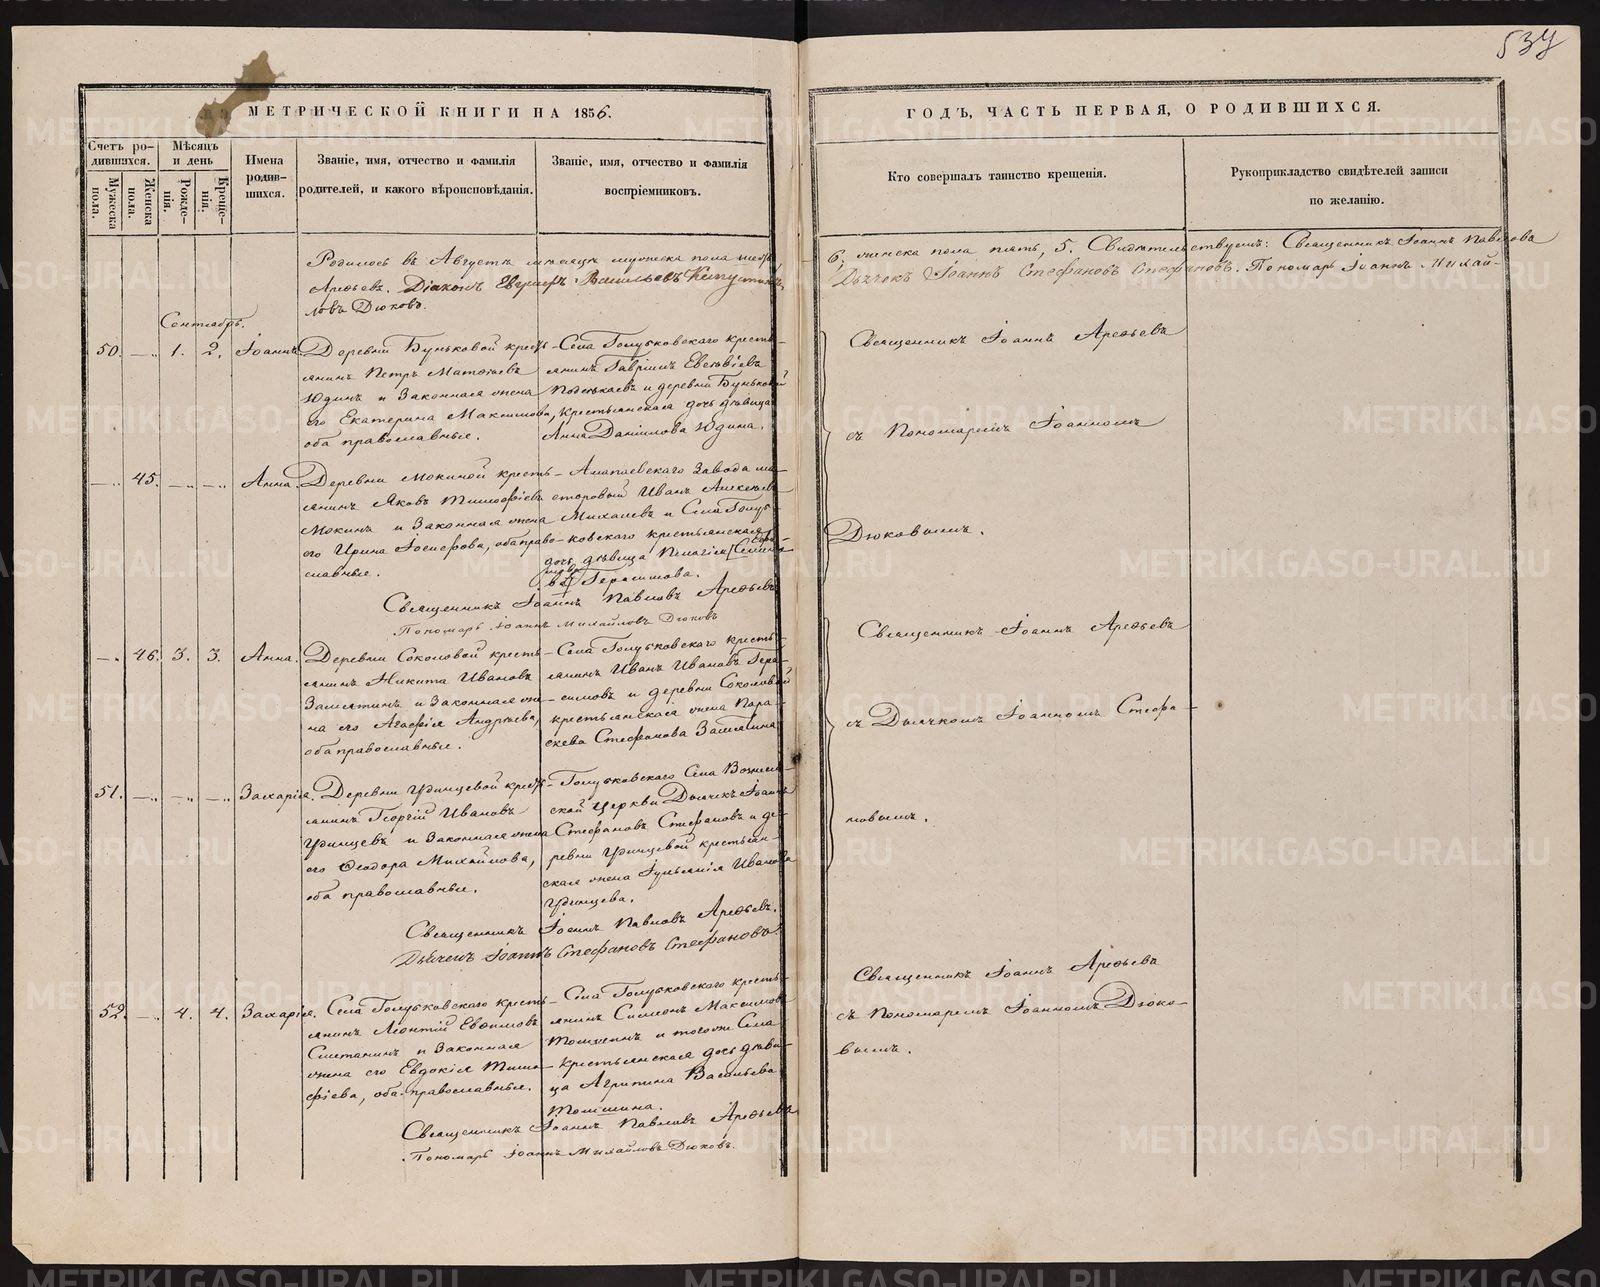 534
МЕТРИЧЕСКОЙ КНИГИ НА 1856.
ГОДЪ, ЧАСТЬ ПЕРВАЯ, О РОДИВШИХСЯ.
Счетъ ро-
дившихся.
Мужеска пола.
Женска пола.
Мѣсяцъ
и день
Рожде-
нія.
Креще-
нія.
Имена
родив-
шихся.
Званіе, имя, отчество и фамилія
родителей, и какого вѣроисповѣданія.
Званіе, имя, отчество и фамилія
воспріемниковъ.
Кто совершалъ таинство крещенія.
Рукоприкладство свидѣтелей записи
по желанію.
Родилось въ Августѣ мѣсяцѣ мужеска пола шесть,
6, женска пола пять, 5. Свидѣтельствуемъ: Священникъ Іоаннъ Павлова
Арефьевъ. Діаконъ Васильевъ
Дьячокъ Іоаннъ Стефановъ Стефановъ. Пономарь Іоаннъ Михай-
ловъ Дюковъ.
Сентябрь.
50. — 1. 2. Іоаннъ.
Деревни Буньковой кресть-
янинъ Петръ Матѳеевъ
Юдинъ и Законная жена
его Екатерина Максимова,
оба православные.
Села Голубковскаго кресть-
янинъ Гавріилъ
и деревни Буньковой
крестьянская дочь дѣвица
Анна Даніилова Юдина.
Священникъ Іоаннъ Арефьевъ
съ Пономаремъ Іоанномъ
Дюковымъ.
— 45. — — Анна.
Деревни Мокиной кресть-
янинъ Яковъ Тимофѣевъ
Мокинъ и Законная жена
его Ирина Іосифова, оба право-
славные.
Алапаевскаго Завода ма-
стеровый Иванъ Алексѣевъ
Михалевъ и Села Голуб-
ковскаго крестьянская
дочь дѣвица Пелагія
Герасимова.
Священникъ Іоаннъ Павловъ Арефьевъ
Пономарь Іоаннъ Михайловъ Дюковъ
— 46. 3. 3. Анна.
Деревни Соколовой кресть-
янинъ Никита Ивановъ
Замятинъ и Законная же-
на его Агафія Андрѣева,
оба православные.
Села Голубковскаго кресть-
янинъ Иванъ Ивановъ Гера-
симовъ и деревни Соколовой
крестьянская жена Пара-
скева Стефанова Замятина
Священникъ Іоаннъ Арефьевъ
съ Дьячкомъ Іоанномъ Стефа-
новымъ.
51. — — — Захарія.
Деревни Удинцевой кресть-
янинъ Георгій Ивановъ
Удинцевъ и Законная жена
его Ѳеодора Михайлова,
оба православные.
Голубковскаго Села Вознесен-
ской Церкви Дьячекъ Іоаннъ
Стефановъ Стефановъ и де-
ревни Удинцевой крестьян-
ская жена Іуліанія Иванова
Удинцева.
Священникъ Іоаннъ Павловъ Арефьевъ.
Дьячекъ Іоаннъ Стефановъ Стефановъ
52. — 4. 4. Захарія.
Села Голубковскаго кресть-
янинъ Леонтій Евѳимовъ
Сметанинъ и Законная
жена его Евдокія Тимо-
фѣева, оба православные.
Села Голубковскаго кресть-
янинъ Симеонъ Максимовъ
и тогоже Села
крестьянская дочь дѣви-
ца Агрипина Васильева
Священникъ Іоаннъ Арефьевъ
съ Пономаремъ Іоанномъ Дюко-
вымъ.
Священникъ Іоаннъ Павловъ Арефьевъ
Пономарь Іоаннъ Михайловъ Дюковъ.
METRIKI.GASO-URAL.RU